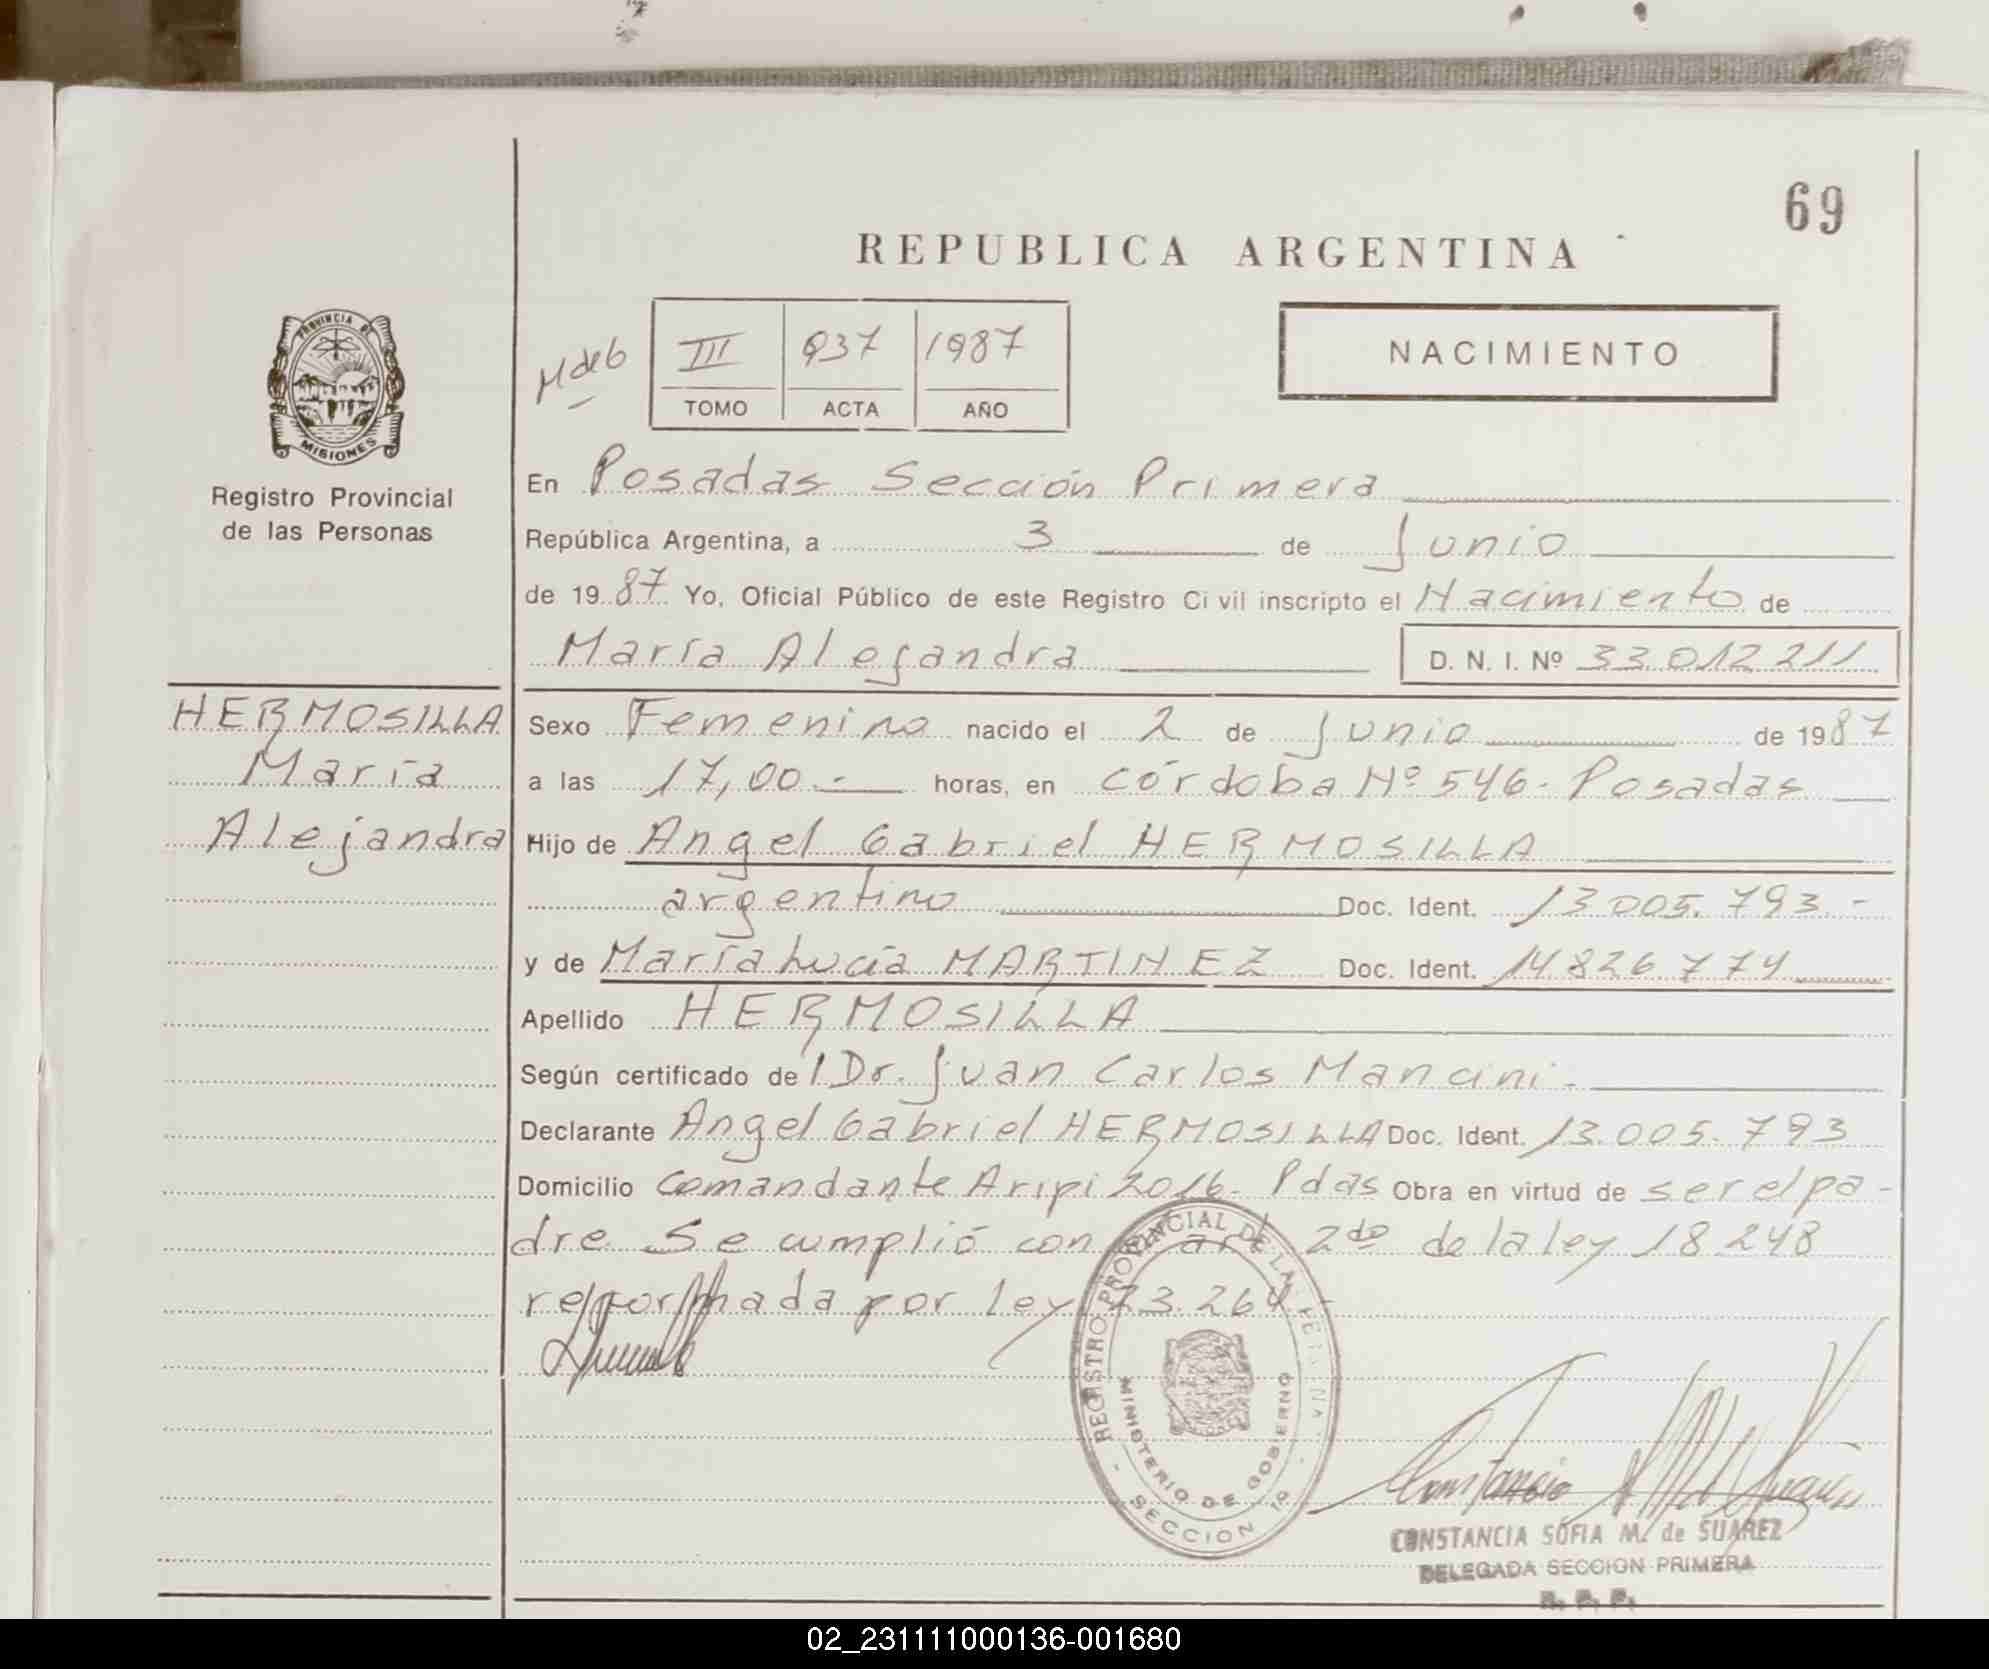 69
REPUBLICA ARGENTINA
PROVINCIA DE
MISIONES
Registro Provincial
de las Personas
M de 6
III 937 1987
TOMO ACTA AÑO
NACIMIENTO
En Posadas Sección Primera
República Argentina, a 3 de Junio
de 1987 Yo, Oficial Público de este Registro Civil inscripto el Nacimiento de
María Alejandra D. N. I. Nº 33.012.211
HERMOSILLA
María
Alejandra
Sexo Femenino nacido el 2 de Junio de 1987
a las 17,00.- horas, en Córdoba Nº 546- Posadas
Hijo de Angel Gabriel HERMOSILLA
argentino Doc. Ident. 13.005.793.-
y de María Lucía MARTINEZ Doc. Ident. 14.826.774
Apellido HERMOSILLA
Según certificado del Dr. Juan Carlos Mancini.-
Declarante Angel Gabriel HERMOSILLA Doc. Ident. 13.005.793
Domicilio Comandante Aripi 2016- Pdas Obra en virtud de ser el pa-
dre Se cumplió con el art 2do de la ley 18.248
reformada por ley 23.264-
REGISTRO PROVINCIAL DE LAS PERSONAS
MINISTERIO DE GOBIERNO
SECCION 1a
CONSTANCIA SOFIA M. de SUAREZ
DELEGADA SECCION PRIMERA
R. P. P.
02_231111000136-001680